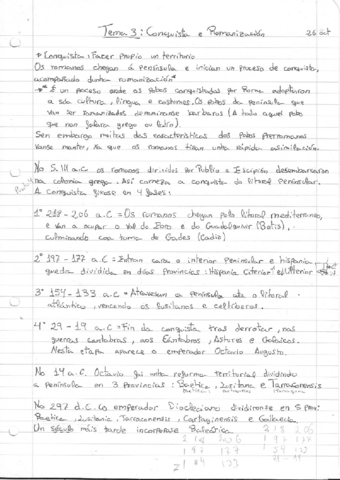 Tema 3: Conquista e Romanización 26 oct
* Conquistar: Facer propio un territorio
Os romanos chegan á península e inician un proceso de conquista,
acompañado dunha romanización*
→* É un proceso onde os pobos conquistados por Roma adoptaron
a súa cultura, lingua e costumes. Os pobos da península que
van ser romanizados denomínanse bárbaros (A todo aquel pobo
que non falara grego ou latín).
Sen embargo moitas das características dos Pobos Prerromanos
vanse manter, xa que os romanos tiñan unha rápida asimilación.
No S.III a.C os romanos dirixidos por Publio Escipión desembarcaron
na colonia grega. Así comeza a conquista do litoral peninsular.
A conquista fíxose en 4 fases:
1º 218-206 a.C = Os romanos chegan polo litoral mediterraneo,
e van a ocupar o Val do Ebro e do Guadalquivir (Betis),
culminando coa toma de Gades (Cadiz)
2º 197-177 a.C = Entran cara o interior peninsular e hispania
queda dividida en dúas provincias: Hispania Citerior e Ulterior
3º 154-133 a.C = Atravesan a península ata o litoral
atlántico, vencendo os lusitanos e celtíberos.
4º 29-19 a.C = Fin da conquista tras derrotar, nas
guerras cántabras, aos Cántabros, Astures e Galaicos.
Nesta etapa aparece o emperador Octavio Augusto.
No 14 a.C. Octavio fai unha reforma territorial dividindo
a península en 3 Provincias: Baetica, Lusitana e Tarraconensis
No 297 d.C. co emperador Diocleciano dividironse en 5 prov:
Baetica, Lusitania, Tarraconensis, Cartaginensis e Gallaecia.
Un século máis tarde incorporase Baleárica.
218 206
218 206 197 177
197 177 154 133
154 133
2